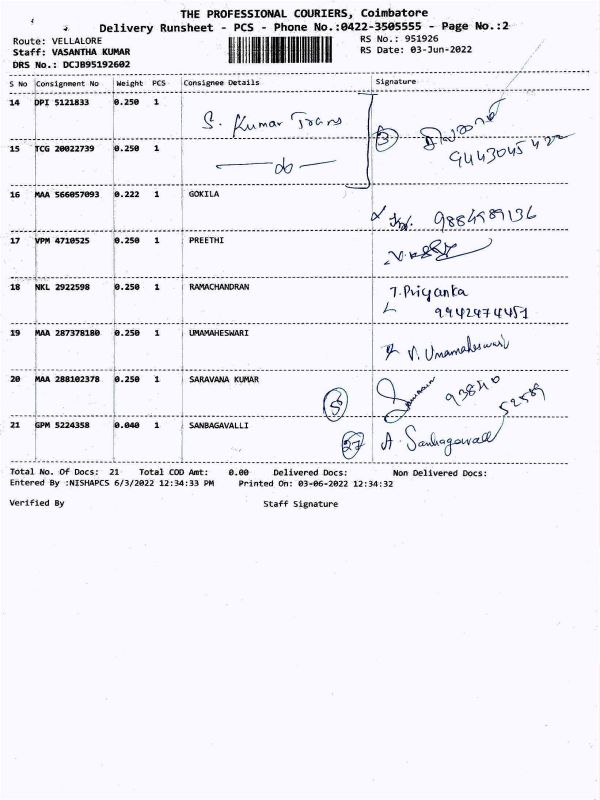 THE PROFESSIONAL COURIERS, Coimbatore
Delivery Runsheet - PCS - Phone No.:0422-3505555 - Page No.:2
Route: VELLALORE
RS No.: 951926
Staff: VASANTHA KUMAR
RS Date: 03-Jun-2022
DRS No.: DCJB95192602
S No Consignment No Weight PCS Consignee Details Signature
14 DPI 5121833 0.250 1 S. Kumar Trans
3
15 TCG 20022739 0.250 1 do
16 MAA 566057093 0.222 1 GOKILA
9884989136
17 VPM 4710525 0.250 1 PREETHI
18 NKL 2922598 0.250 1 RAMACHANDRAN T. Priyanka
9942474451
19 MAA 287378180 0.250 1 UMAMAHESWARI V. Umamaheswari
20 MAA 288102378 0.250 1 SARAVANA KUMAR
5 93840 52589
21 GPM 5224358 0.040 1 SANBAGAVALLI 27 A. Sanbagavalli
Total No. Of Docs: 21 Total COD Amt: 0.00 Delivered Docs: Non Delivered Docs:
Entered By :NISHAPCS 6/3/2022 12:34:33 PM Printed On: 03-06-2022 12:34:32
Verified By Staff Signature